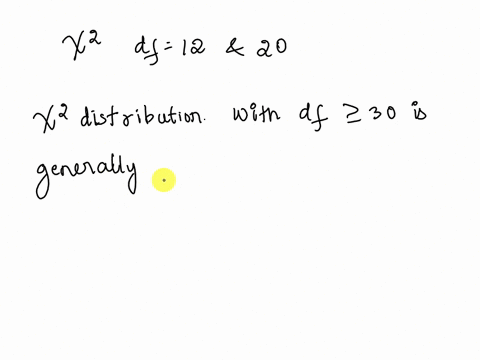 χ² df = 12 & 20
χ² distribution. with df ≥ 30 is
generally